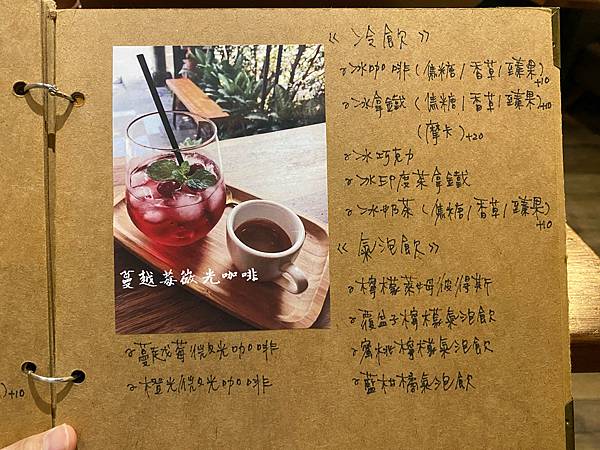 蔓越莓微光咖啡
蔓越莓微光咖啡
橙光微光咖啡
《冷飲》
冰咖啡(焦糖/香草/榛果)+10
冰拿鐵(焦糖/香草/榛果)+10
(摩卡)+20
冰巧克力
冰印度茶拿鐵
冰奶茶(焦糖/香草/榛果)+10
《氣泡飲》
檸檬萊姆彼得斯
覆盆子檸檬氣泡飲
蜜桃檸檬氣泡飲
藍柑橘氣泡飲
)+10